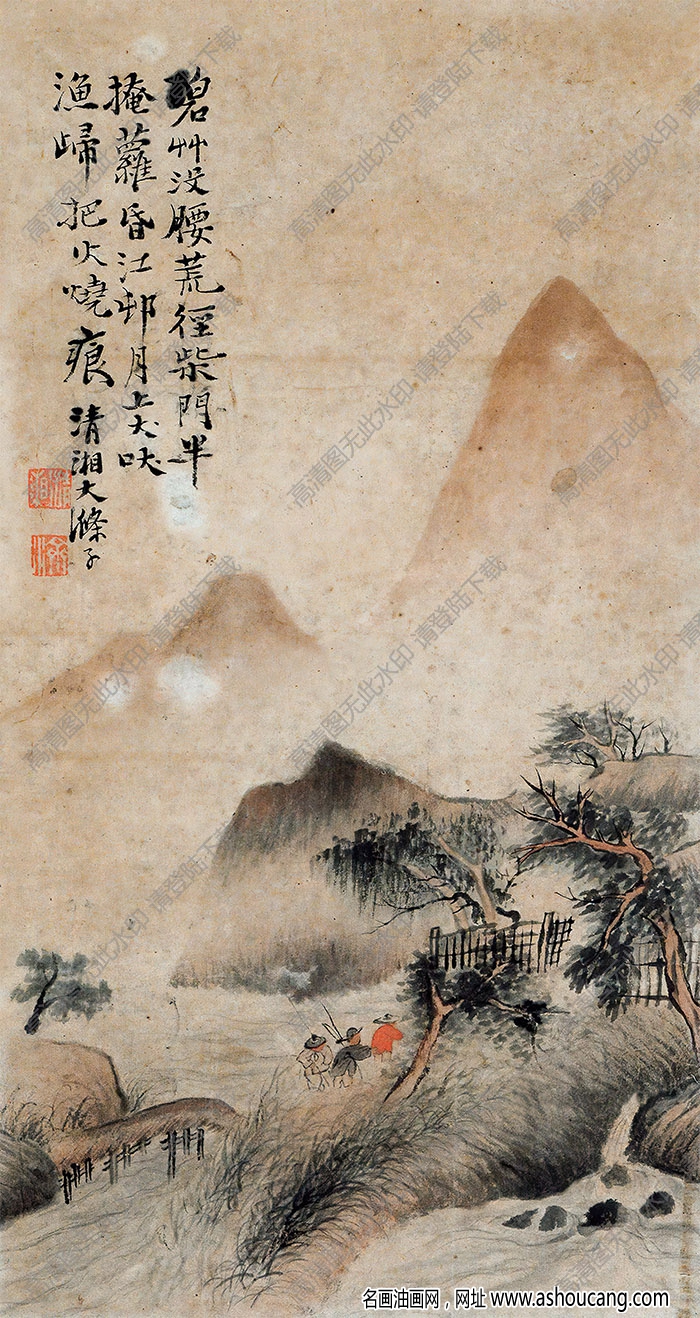 碧艸没腰荒徑柴門半
掩蘿昏江邨月上犬吠
漁歸把火燒痕
清湘大滌子
高清图无此水印 请登陆下载
名画油画网，网址 www.ashoucang.com